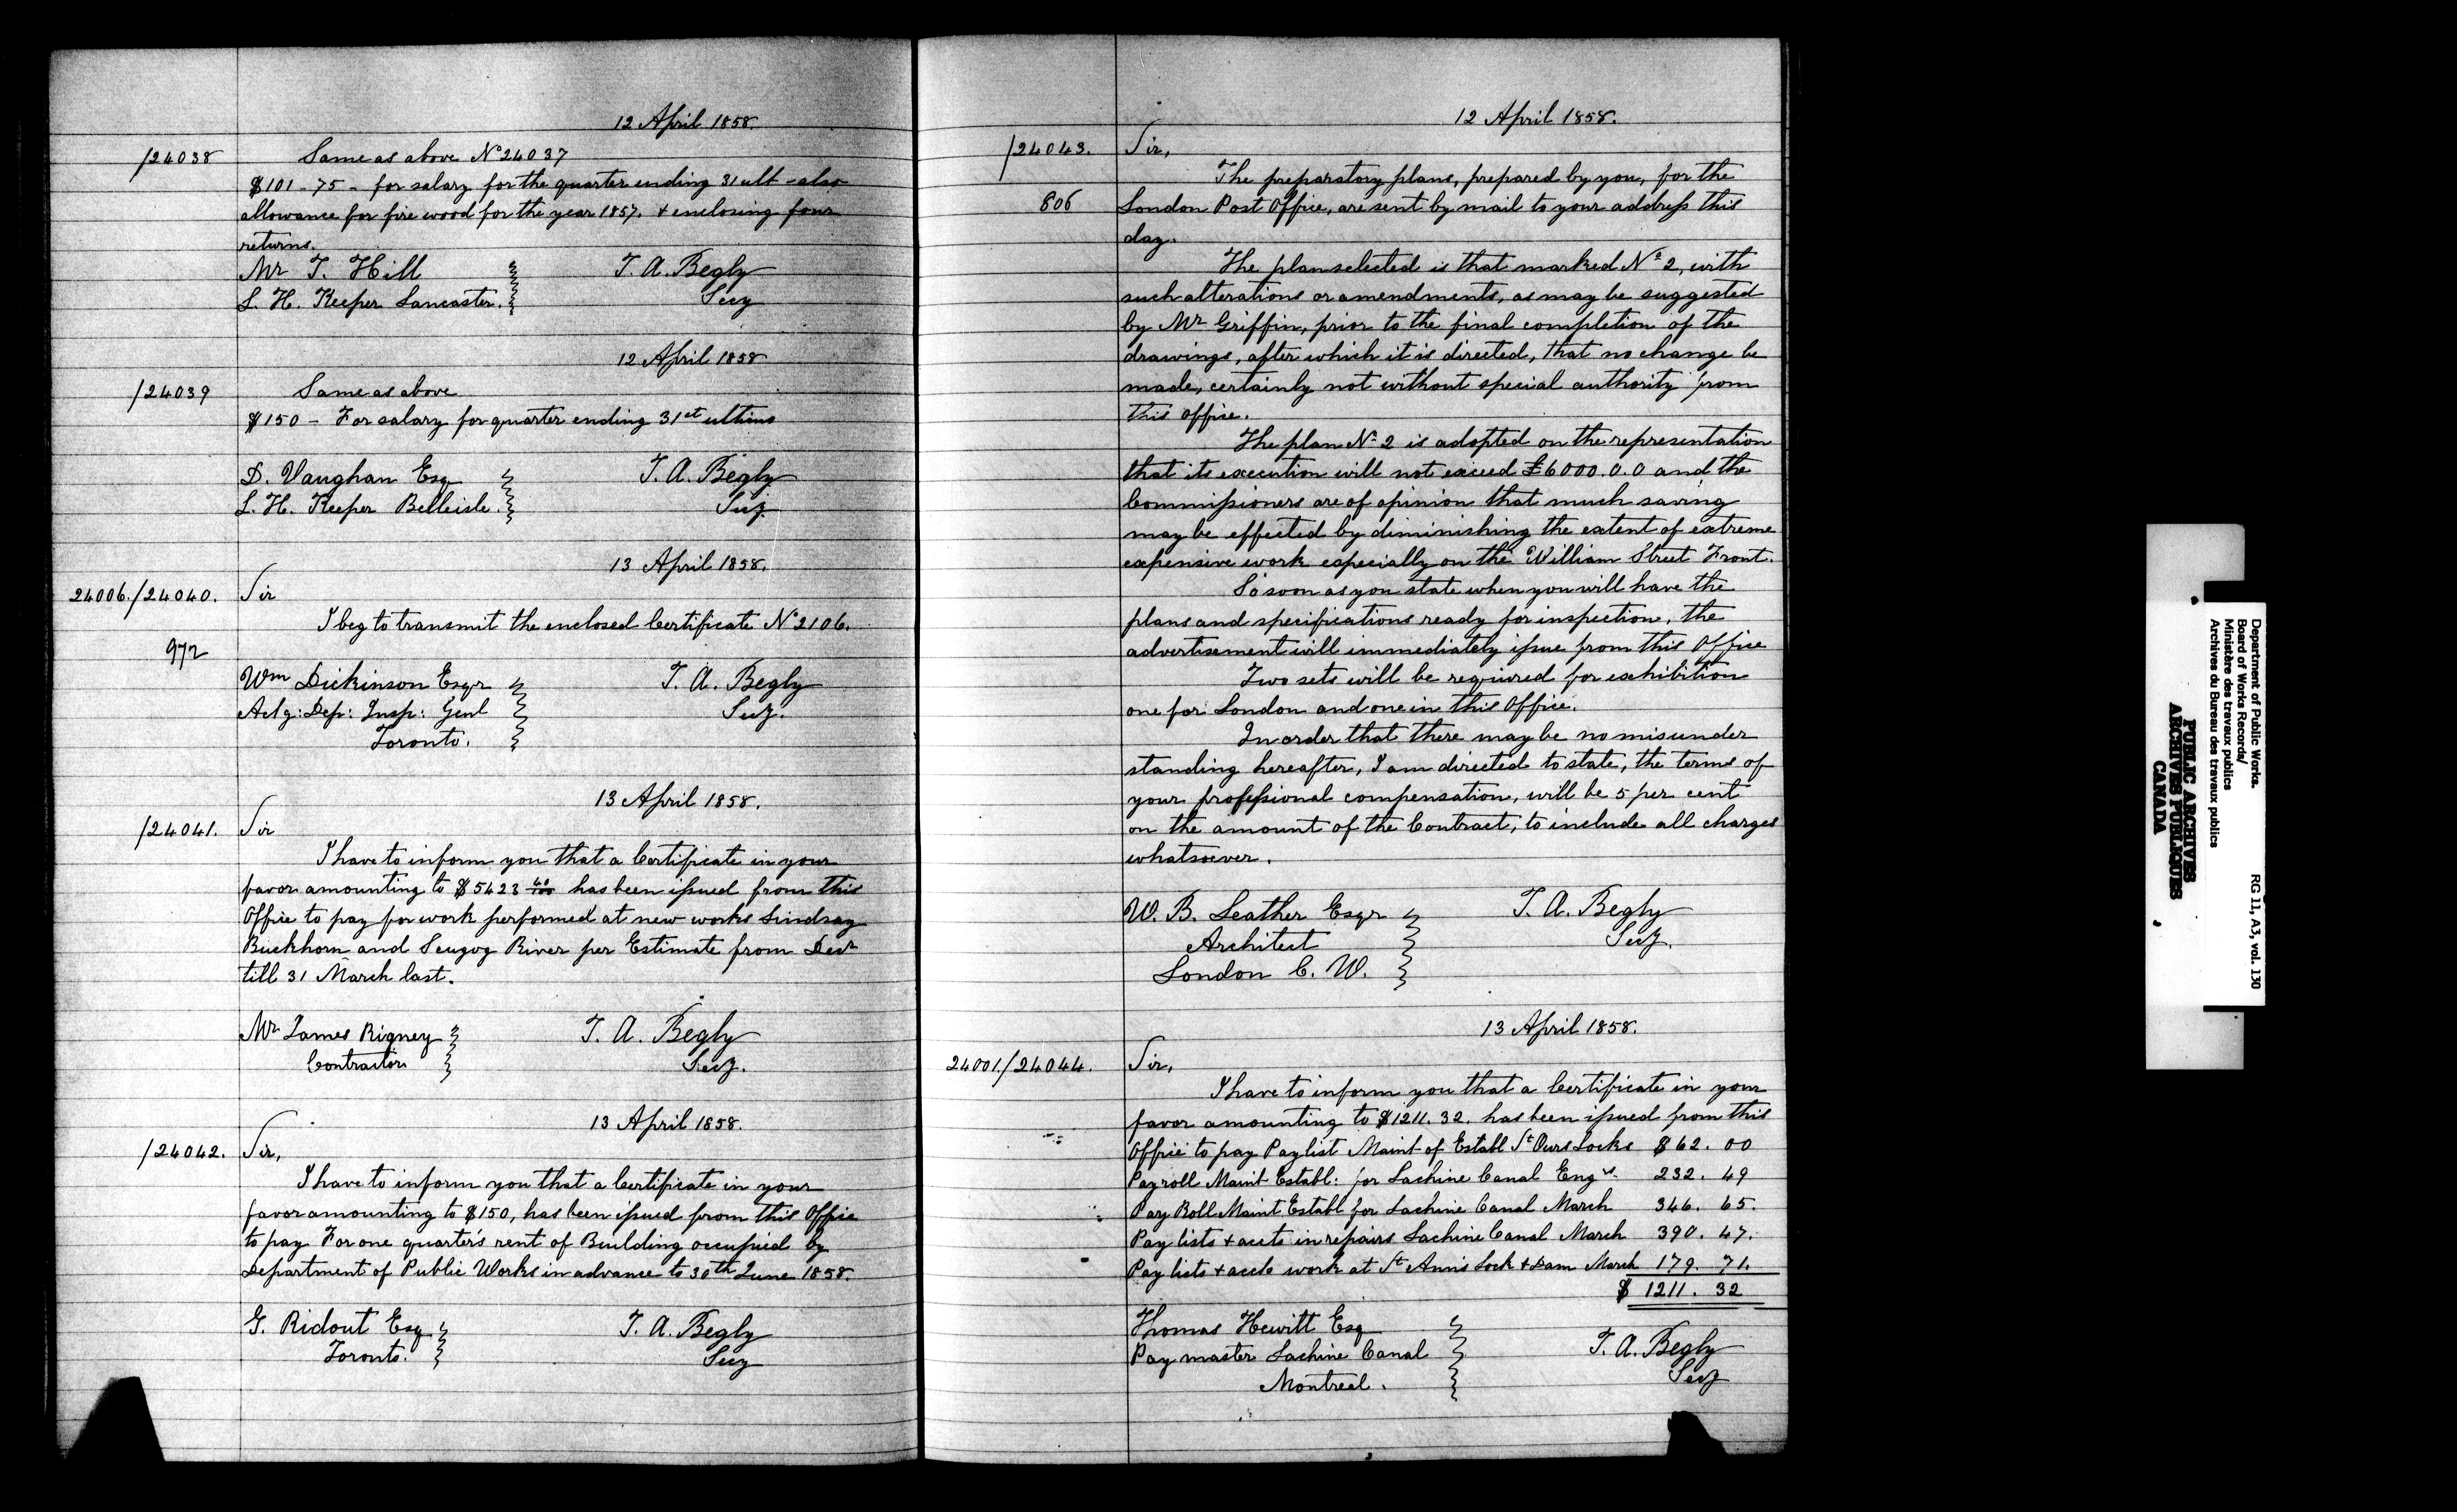 12 April 1858.
/24038 Same as above No 24037
$101-75- for salary for the quarter ending 31 ult - also
allowance for fire wood for the year 1857. + enclosing four
returns.
Mr T. Hill T. A. Begly
L. H. Keeper Lancaster. Secy
12 April 1858
/24039 Same as above
$150 - For salary for quarter ending 31st ultimo
D. Vaughan Esq T. A. Begly
L. H. Keeper Belleisle. Secy.
13 April 1858.
24006./24040. Sir
I beg to transmit the enclosed Certificate No 2106.
972
Wm Dickinson Esqr T. A. Begly
Actg: Dep: Insp: Genl Secy.
Toronto.
13 April 1858.
/24041. Sir
I have to inform you that a Certificate in your
favor amounting to $5423 40/100 has been issued from this
Office to pay for work performed at new works Lindsay
Buckhorn and Scugog River per Estimate from Decr
till 31 March last.
Mr James Rigney T. A. Begly
Contractor Secy.
13 April 1858.
/24042. Sir,
I have to inform you that a Certificate in your
favor amounting to $150, has been issued from this Office
to pay For one quarter's rent of Building occupied by
Department of Public Works in advance to 30th June 1858.
G. Ridout Esq T. A. Begly
Toronto. Secy
12 April 1858.
/24043. Sir,
The preparatory plans, prepared by you, for the
806 London Post Office, are sent by mail to your address this
day.
The plan selected is that marked No 2, with
such alterations or amendments, as may be suggested
by Mr Griffin, prior to the final completion of the
drawings, after which it is directed, that no change be
made, certainly not without special authority from
this office.
The plan No 2 is adopted on the representation
that its execution will not exceed £6000.0.0 and the
Commissioners are of opinion that much saving
may be effected by diminishing the extent of extreme
expensive work especially on the William Street Front.
So soon as you state when you will have the
plans and specifications ready for inspection, the
advertisement will immediately issue from this Office
Two sets will be required for exhibition
one for London and one in this Office.
In order that there may be no misunder
standing hereafter, I am directed to state, the terms of
your professional compensation, will be 5 per cent
on the amount of the Contract, to include all charges
whatsoever.
W. B. Leather Esqr T. A. Begly
Architect Secy.
London C. W.
13 April 1858.
24001./24044. Sir,
I have to inform you that a Certificate in your
favor amounting to $1211.32. has been issued from this
Office to pay Paylist Maint of Establ St Ours Locks $62.00
Pay roll Maint Establ: for Lachine Canal Engrs. 232.49
Pay Roll Maint Establ for Lachine Canal March 346.65.
Pay lists + accts in repairs Lachine Canal March 390.47.
Pay lists + accts work at St Anns Lock + Dam March 179.71.
$ 1211.32
Thomas Hewitt Esq
Pay master Lachine Canal T. A. Begly
Montreal. Secy
Department of Public Works.
Board of Works Records/
Ministère des travaux publics
Archives du Bureau des travaux publics
RG 11, A3, vol. 130
PUBLIC ARCHIVES
ARCHIVES PUBLIQUES
CANADA